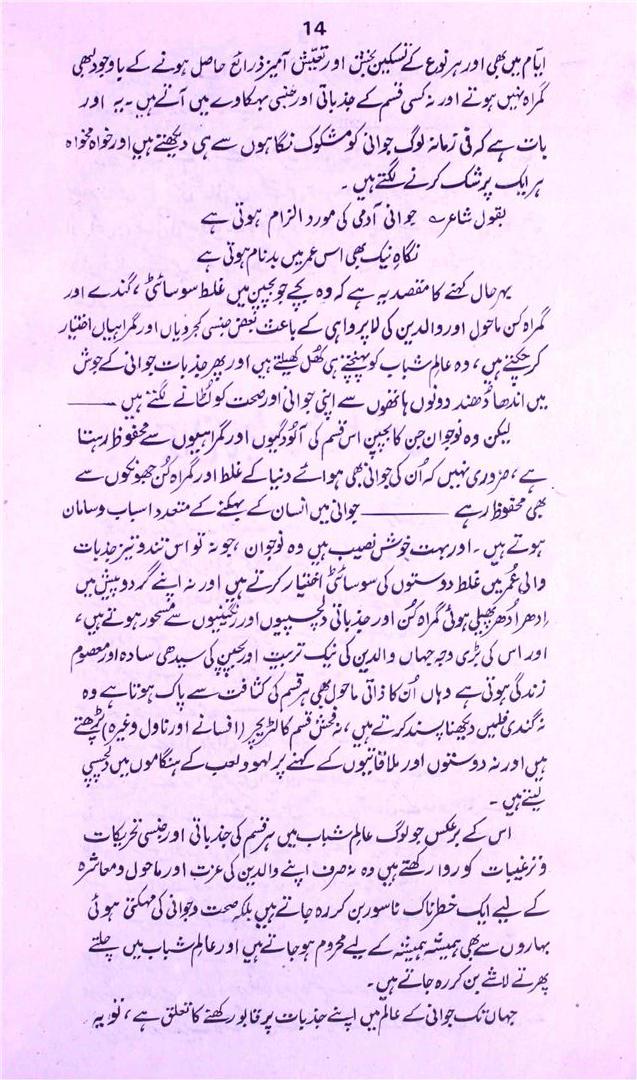 14
ایّام میں بھی اور ہر نوع کے تسکین بخش اور تعیّش آمیز ذرائع حاصل ہونے کے باوجود بھی
گمراہ نہیں ہوتے اور نہ کسی قسم کے جذباتی اور جنسی بہکاوے میں آتے ہیں ۔ یہ اور
بات ہے کہ فی زمانہ لوگ جوانی کو مشکوک نگاہوں سے ہی دیکھتے ہیں اور خواہ مخواہ
ہر ایک پر شک کرنے لگتے ہیں ۔
بقول شاعر ؎ جوانی آدمی کی مورد الزام ہوتی ہے
نگاہِ نیک بھی اس عمر میں بدنام ہوتی ہے
بہرحال کہنے کا مقصد یہ ہے کہ وہ بچے جو بچپن میں غلط سوسائٹی ، گندے اور
گمراہ کن ماحول اور والدین کی لاپرواہی کے باعث بعض جنسی کجرویاں اور گمراہیاں اختیار
کر چکتے ہیں ، وہ عالمِ شباب کو پہنچتے ہی کھُل کھیلتے ہیں اور پھر جذبات جوانی کے جوش
میں اندھا دُھند دونوں ہاتھوں سے اپنی جوانی اور صحت کو لُٹانے لگتے ہیں ——
لیکن وہ نوجوان جن کا بچپن اس قسم کی آلودگیوں اور گمراہیوں سے محفوظ رہتا
ہے ، ضروری نہیں کہ اُن کی جوانی بھی ہوائے دنیا کے غلط اور گمراہ کُن جھونکوں سے
بھی محفوظ رہے —— جوانی میں انسان کے بہکنے کے متعدد اسباب و سامان
ہوتے ہیں ۔ اور بہت خوش نصیب ہیں وہ نوجوان ، جو نہ تو اس تند و تیز جذبات
والی عُمر میں غلط دوستوں کی سوسائٹی اختیار کرتے ہیں اور نہ اپنے گرد و پیش میں
اِدھر اُدھر پھیلی ہوئی گمراہ کُن اور جذباتی دلچسپیوں اور رنگینیوں سے مسحور ہوتے ہیں ،
اور اس کی بڑی وجہ جہاں والدین کی نیک تربیت اور بچپن کی سیدھی سادہ اور معصوم
زندگی ہوتی ہے وہاں اُن کا ذاتی ماحول بھی ہر قسم کی کثافت سے پاک ہوتا ہے وہ
نہ گندی فلمیں دیکھنا پسند کرتے ہیں ، نہ فحش قسم کا لٹریچر (افسانے اور ناول وغیرہ) پڑھتے
ہیں اور نہ دوستوں اور ملاقاتیوں کے کہنے پر لہو و لعب کے ہنگاموں میں دلچسپی
لیتے ہیں ۔
اس کے برعکس جو لوگ عالمِ شباب میں ہر قسم کی جذباتی اور جنسی تحریکات
و ترغیبات کو روا رکھتے ہیں وہ نہ صرف اپنے والدین کی عزت اور ماحول و معاشرہ
کے لیے ایک خطرناک ناسور بن کر رہ جاتے ہیں بلکہ صحت و جوانی کی مہکتی ہوئی
بہاروں سے بھی ہمیشہ ہمیشہ کے لیے محروم ہو جاتے ہیں اور عالمِ شباب میں چلتے
پھرتے لاشے بن کر رہ جاتے ہیں ۔
جہاں تک جوانی کے عالم میں اپنے جذبات پر قابو رکھنے کا تعلق ہے ، تو یہ